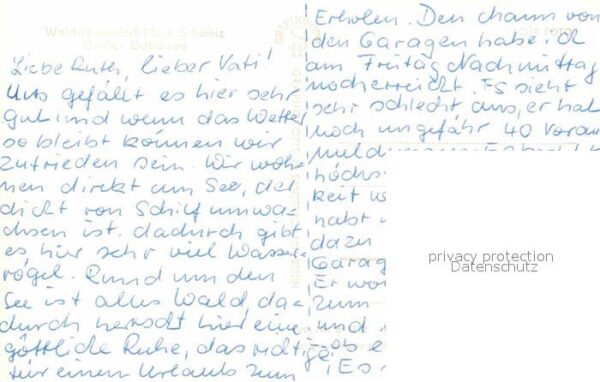 Märk. Schweiz
Großer Däbersee
Liebe Ruth, lieber Vati!
Uns gefällt es hier sehr
gut und wenn das Wetter
so bleibt können wir
zufrieden sein. Wir woh-
nen direkt am See, der
dicht von Schilf umwa-
chsen ist. dadurch gibt
es hier sehr viel Wasser-
vögel. Rund um den
See ist alles Wald, da-
durch herrscht hier eine
göttliche Ruhe, das richtige
für einen Urlaub zum
Erholen. Den von
den Garagen habe ich
am Freitag Nachmittag
noch erreicht. Es sieht
sehr schlecht aus, er hat
noch ungefähr 40 Voran
meld
höchs
keit
habt
dazu
Garag
Er wo
zum
und
ob e
Es
privacy protection
Datenschutz